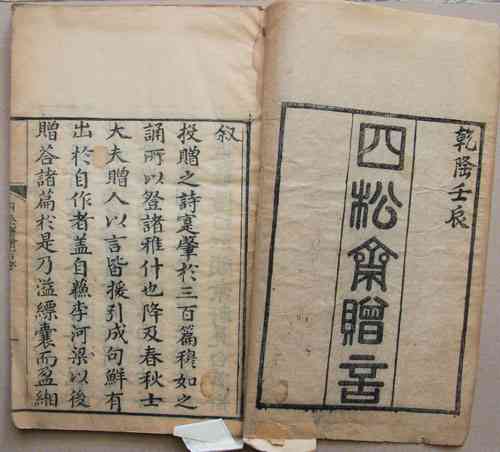 乾隆壬辰
四松齋贈言
叙
投贈之詩寔肇於三百篇穆如之
誦所以登諸雅什也降及春秋士
大夫贈人以言皆援引成句鮮有
出於自作者蓋自蘓李河梁以後
贈答諸篇於是乃溢縹囊而盈緗